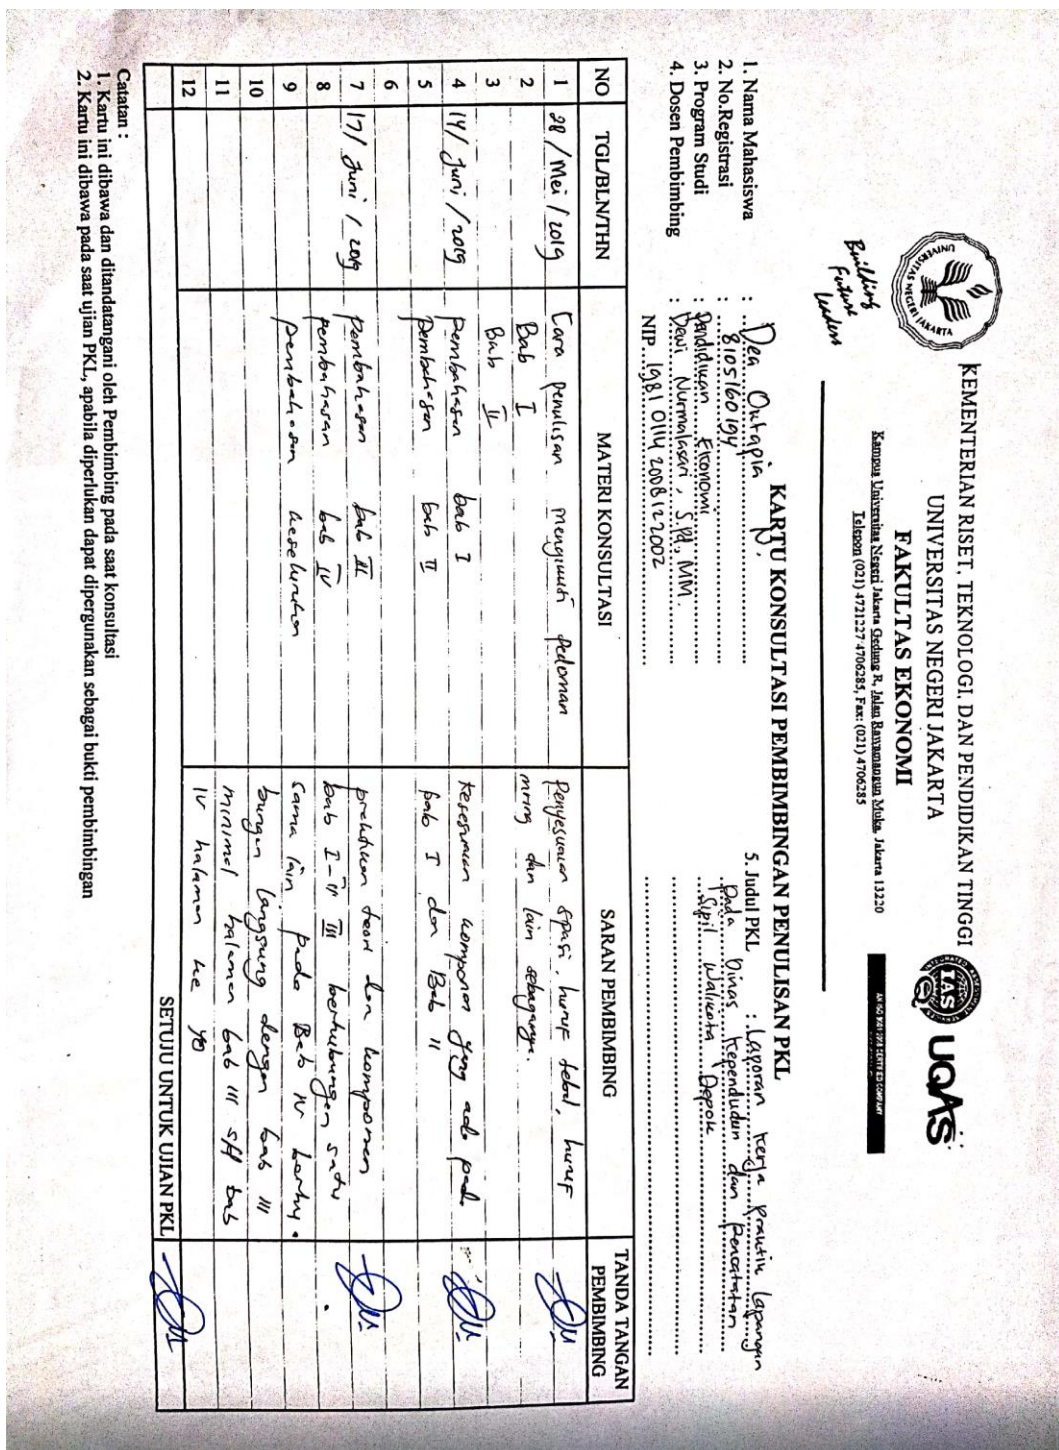 KEMENTERIAN RISET, TEKNOLOGI, DAN PENDIDIKAN TINGGI
UNIVERSITAS NEGERI JAKARTA
FAKULTAS EKONOMI
Kampus Universitas Negeri Jakarta Gedung R, Jalan Rawamangun Muka, Jakarta 13220
Telepon (021) 4721227/4706285, Fax: (021) 4706285
UNIVERSITAS NEGERI JAKARTA
Building
Future
Leaders
IAS
UQAS
KARTU KONSULTASI PEMBIMBINGAN PENULISAN PKL
1. Nama Mahasiswa : Dea Outapia
2. No.Registrasi : 8105160194
3. Program Studi : Pendidikan Ekonomi
4. Dosen Pembimbing : Dewi Nurmalasari, S.Pd., MM.
NIP. 1981 0114 200812 2002
5. Judul PKL : Laporan Kerja Praktik Lapangan
Pada Dinas Kependudukan dan Pencatatan
Sipil Walikota Depok
NO TGL/BLN/THN MATERI KONSULTASI SARAN PEMBIMBING TANDA TANGAN PEMBIMBING
1 28 / Mei / 2019 Cara penulisan mengikuti pedoman Penyesuaian spasi, huruf tebal, huruf
2 Bab I miring dan lain sebagainya.
3 Bab II
4 14 / Juni / 2019 pembahasan bab I Kesesuaian komponen yang ada pada
5 Pembahasan bab II bab I dan Bab II
6
7 17 / Juni / 2019 Pembahasan bab III teori dan komponen
8 pembahasan bab IV bab I-II III berhubungan satu
9 pembahasan keseluruhan sama lain. pada Bab IV berhu
10 bungan langsung dengan bab III
11 minimal halaman bab III s/d bab
12 IV halaman ke 40
SETUJU UNTUK UJIAN PKL
Catatan :
1. Kartu ini dibawa dan ditandatangani oleh Pembimbing pada saat konsultasi
2. Kartu ini dibawa pada saat ujian PKL, apabila diperlukan dapat dipergunakan sebagai bukti pembimbingan